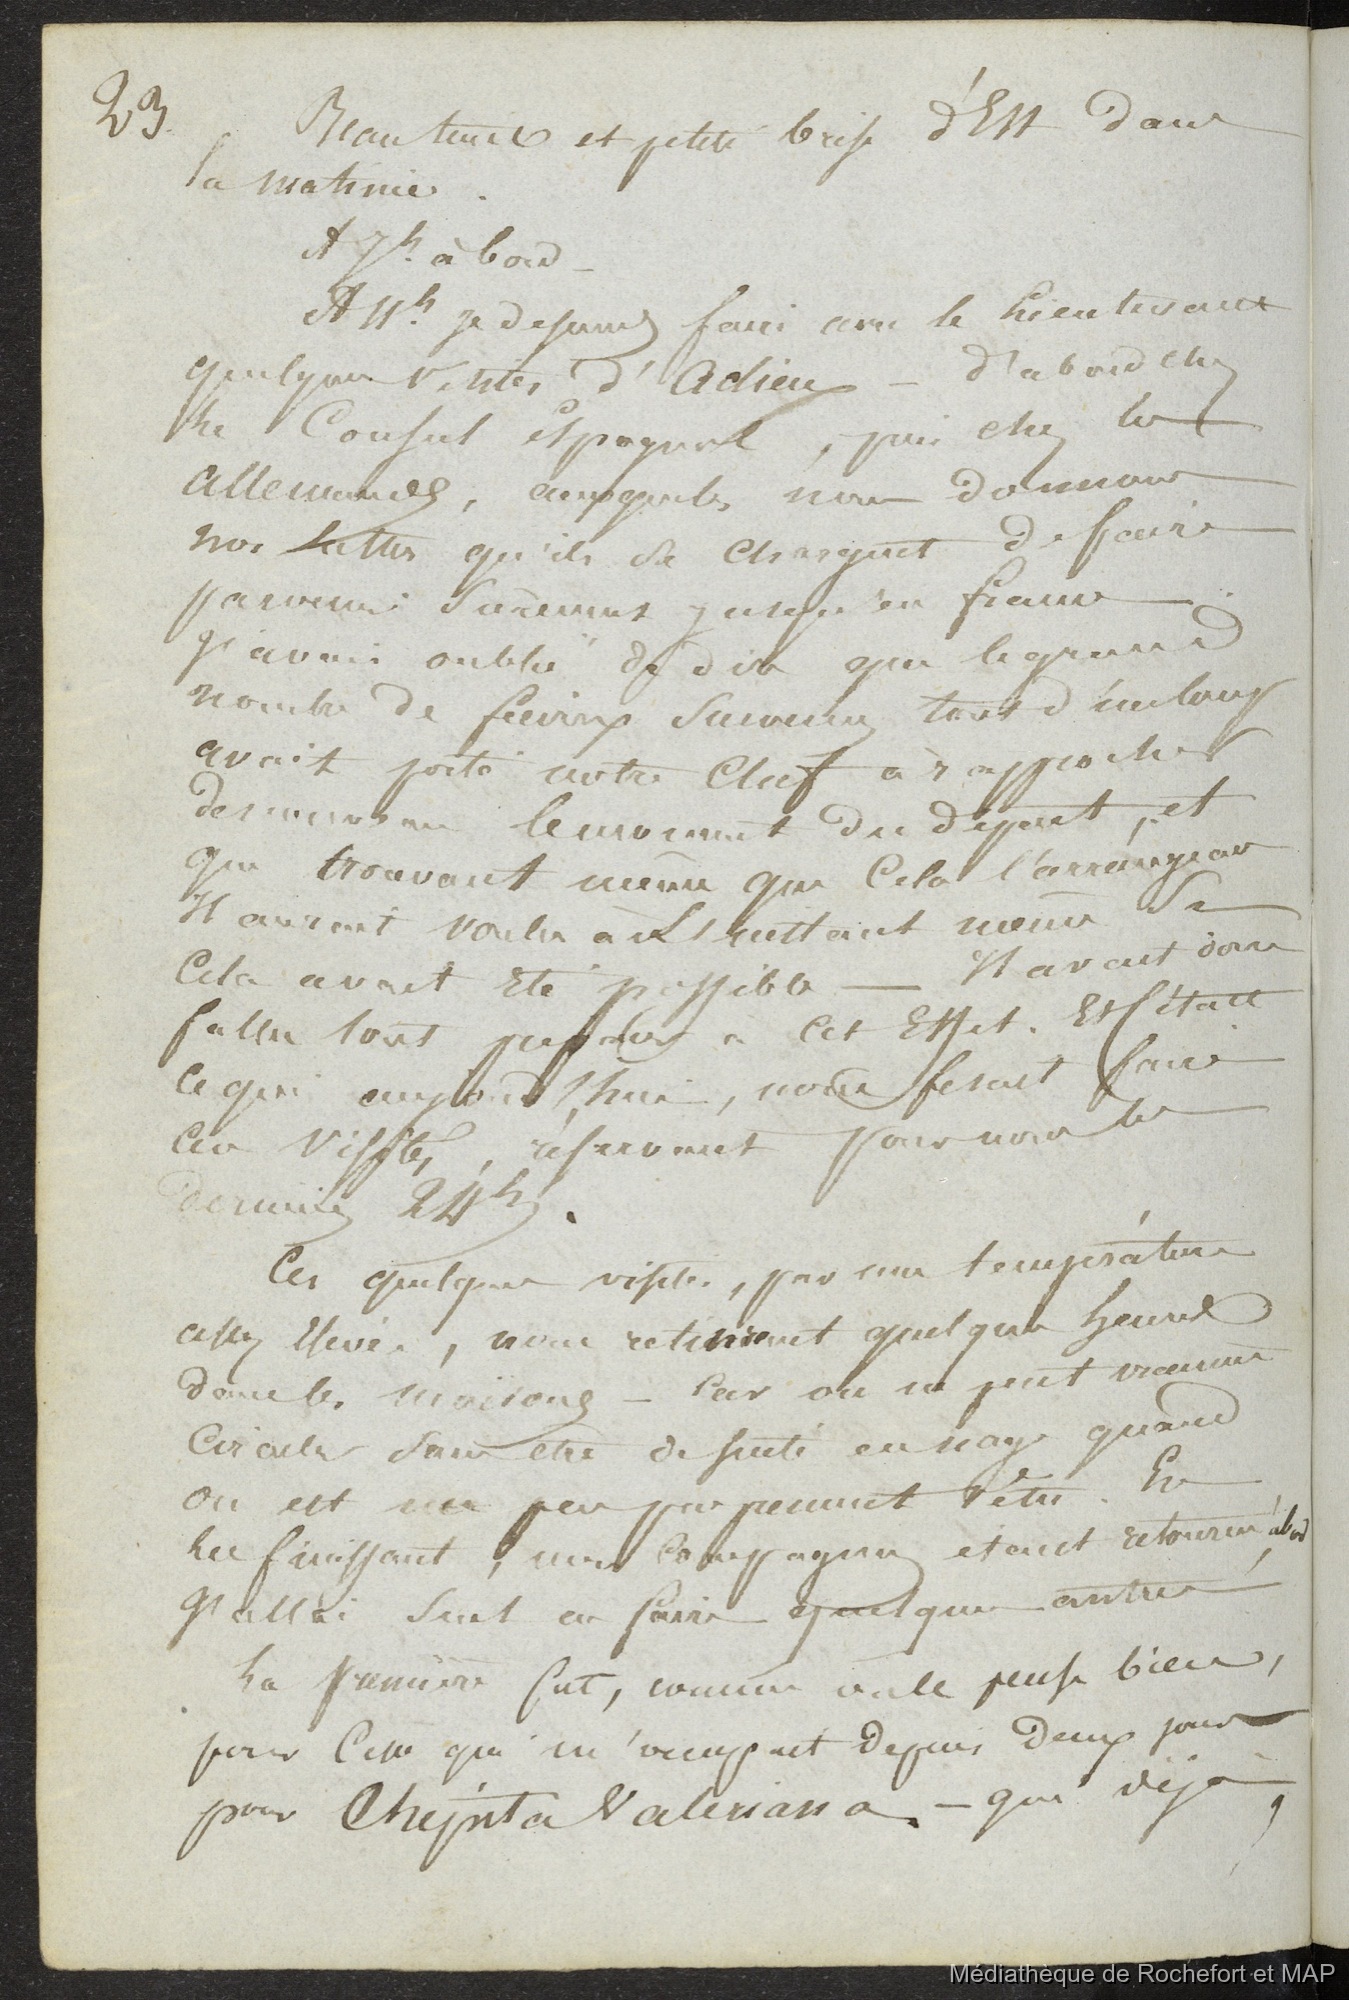 23.
Beau temps et petite brise d'Est dans
la matinée.
A 7h. à bord _
A 11h. je descends faire avec le Lieutenant
quelques visites d'Adieu – d'abord chez
le Consul Espagnol, puis chez les
allemands, auxquels nous donnons
nos lettres qu'ils se chargent de faire
parvenir surement jusqu'en france
J'avais oublié de dire que le grand
nombre de fièvres survenues tout d'un coup
avait porté notre Chef à rapprocher
de nouveau le moment du départ, et
que trouvant même que cela l'arrangeait
Il aurait voulu à l'instant même si
Cela avait été possible — Il avait donc
fallu tout preparer à cet Effet. Et C'était
ce qui aujourd'hui, nous fesait faire
ces Visites, réservant pour nous les
dernières 24h.
Ces quelques visites, par une température
assez élevée, nous retinrent quelques heures
dans les maisons – Car on ne peut vraiment
Circuler sans être de suite en nage quand
on est un peu proprement Vêtu. En
les finissant, mon compagnon étant retourné à bord
J'allai seul en faire quelques autres
La première fut, comme on le pense bien,
pour Celle qui m'occupait depuis deux jours
pour Chepita Valeriana. – qui déjà,
Médiathèque de Rochefort et MAP